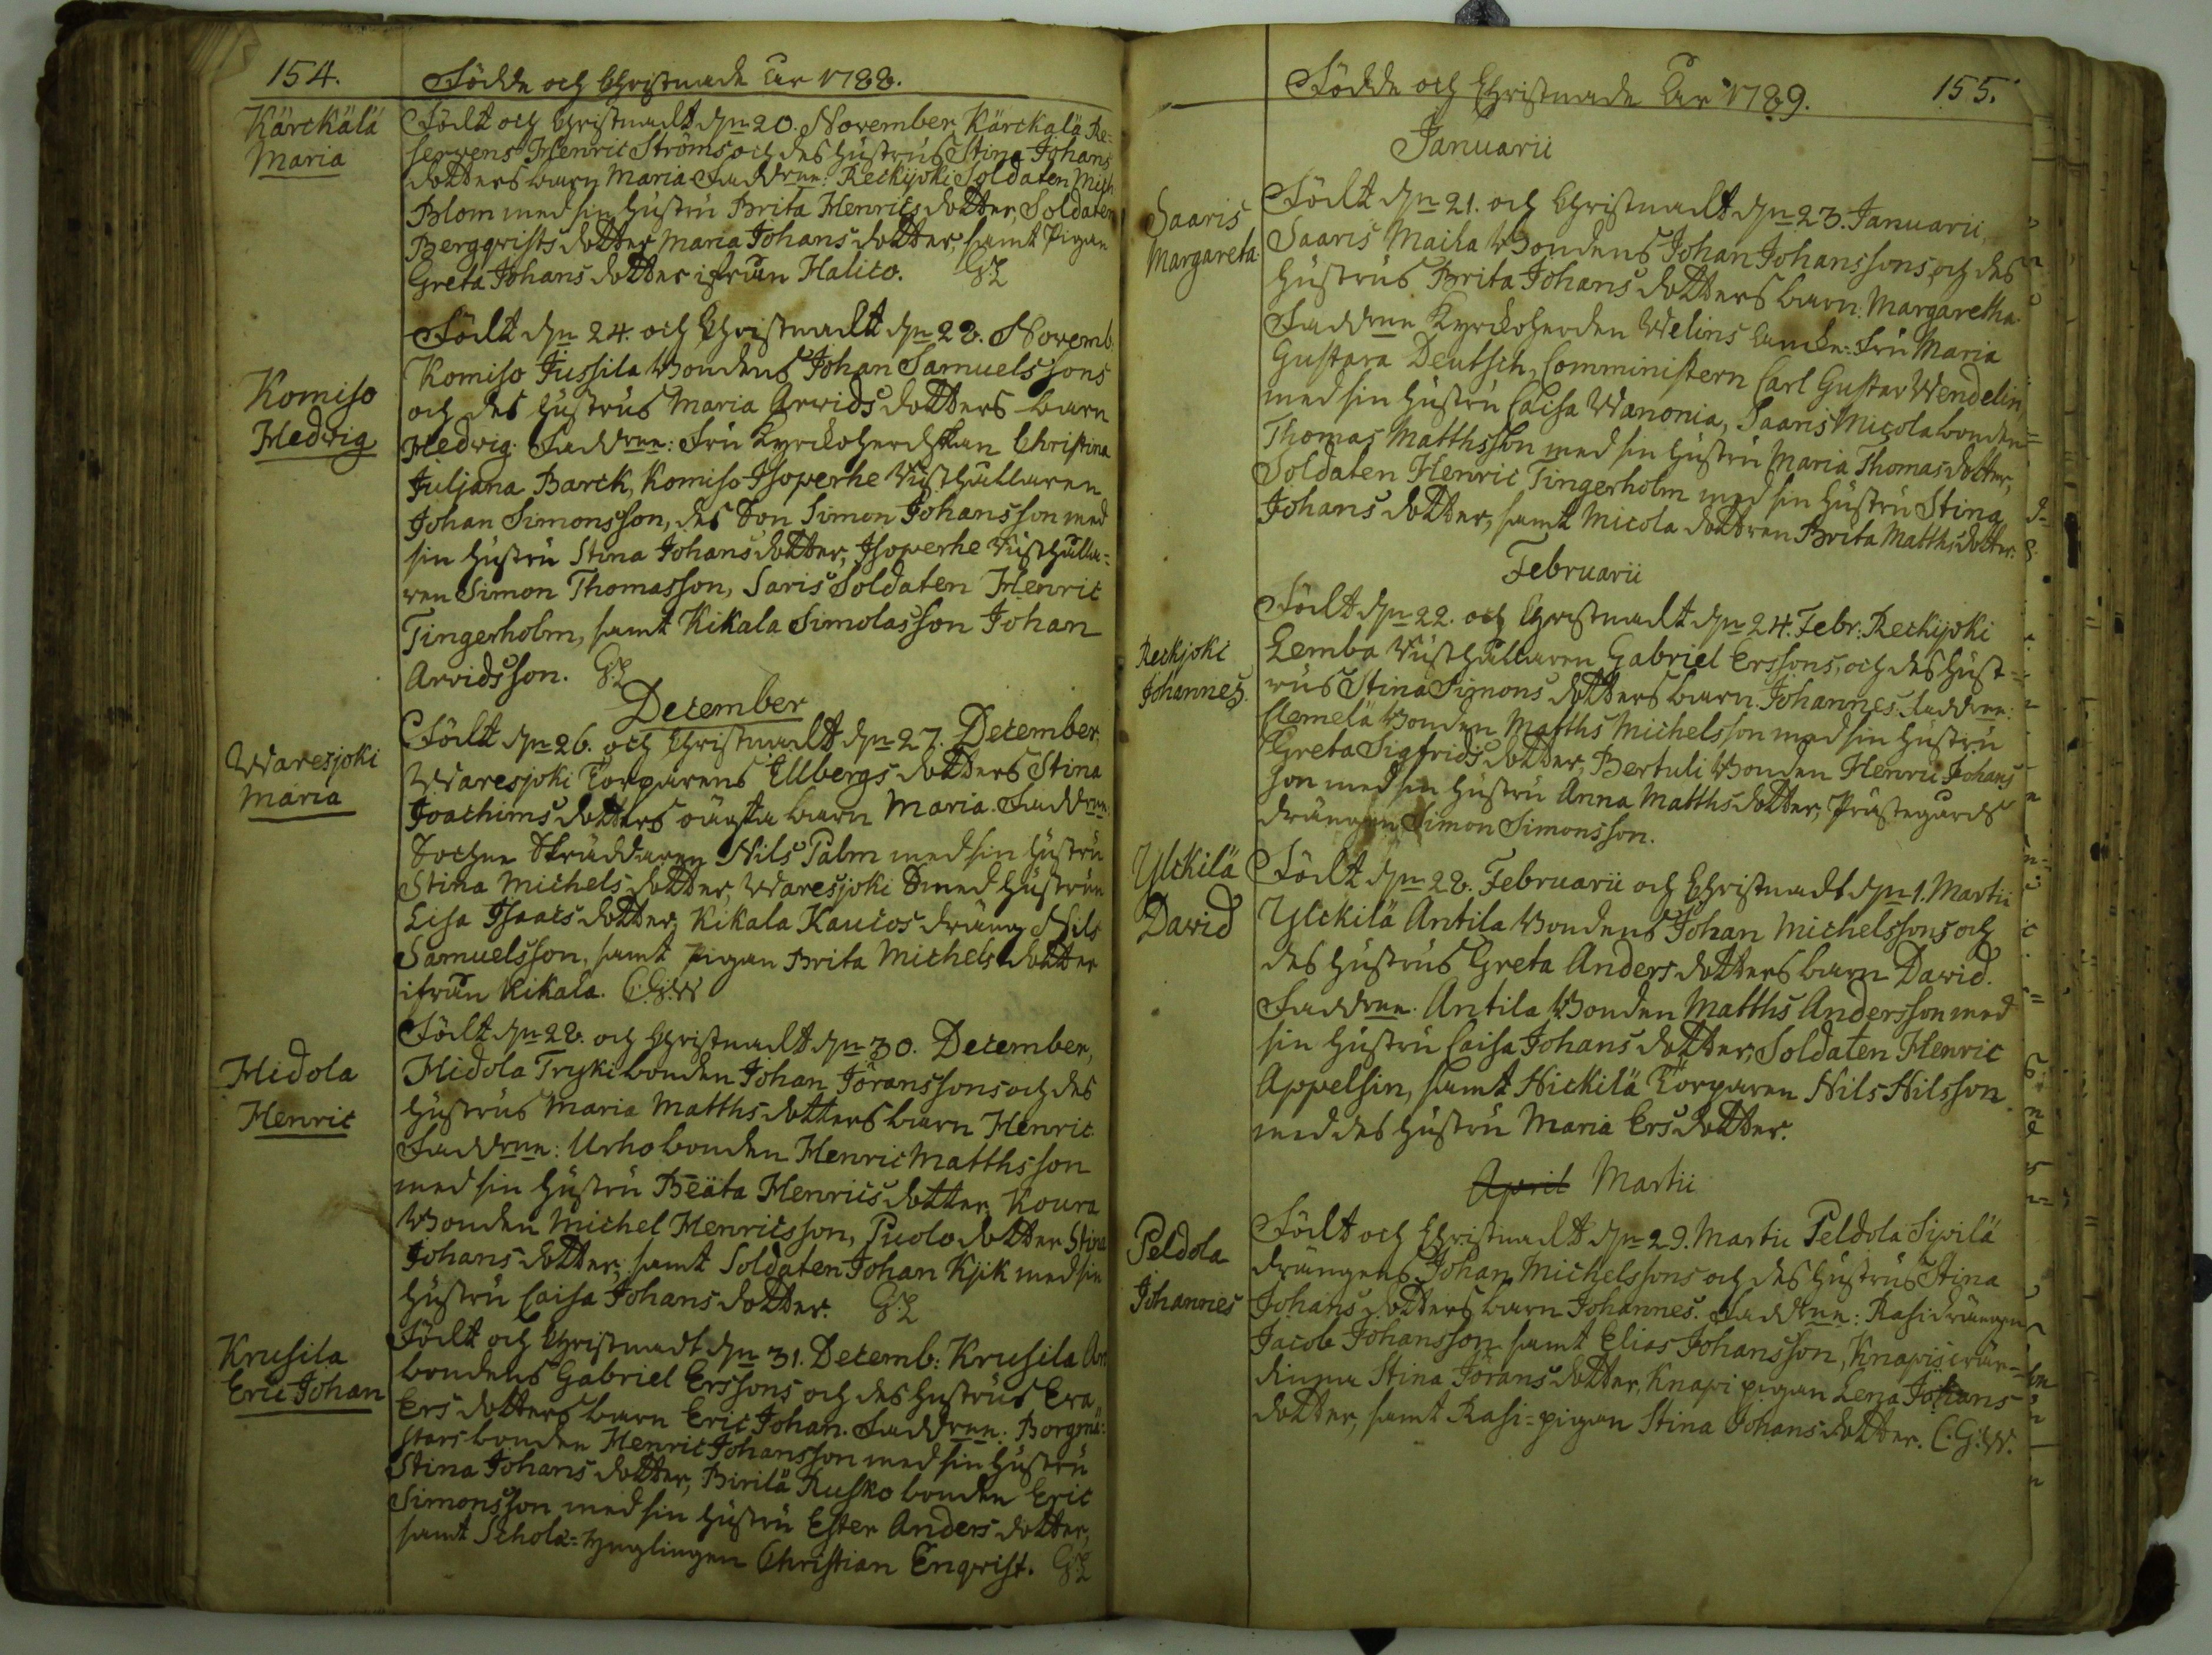 154.
Födde och Christnade År 1788.
Kärckälä
Maria
Födt och Christnadt d:n 20. November Kärckälä Re-
servens Henric Ströms och des Hustrus Stina Johans
dotters barn Maria Faddrne: Reckijoki Soldaten Mich
Blom med sin Hustru Brita Henrics dotter, Soldaten
Bergqvists dotter Maria Johans dotter, samt Pigan
Greta Johans dotter ifrån Halico. G:L
Komiso
Hedvig
Födt d:n 24. och Christnadt d:n 28. Novemb.
Komiso Jussila Bondens Johan Samuelssons
och des Hustrus Maria Arvids dotters barn
Hedvig. Faddrne: Fru Kyrckoherdskan Christina
Juljana Barck, Komiso Isoperhe Rusthållaren
Johan Simonsson, des Son Simon Johansson med
sin Hustru Stina Johansdotter, Isoperhe Rusthålla-
ren Simon Thomasson, Saris Soldaten Henric
Tingerholm, samt Kikala Simolasson Johan
Arvidsson. G:L
December
Waresjoki
Maria
Födt d:n 26. och Christnadt d:n 27. December,
Waresjoki Torparens Ellbergs dotters Stina
Joachims dotters oägta barn Maria. Faddrne
Sochne Skräddaren Nils Palm med sin Hustru
Stina Michels dotter, Waresjoki Smed Hustrun
Lisa Isaacs dotter, Kikala Kaucos dräng Nils
Samuelsson, samt Pigan Brita Michels dotter
ifrån Kikala. C:G:W
Hidola
Henric
Födt d:n 28. och Christnadt d:n 30. December,
Hidola Tryki bonden Johan Jöranssons och des
Hustrus Maria Matths dotters barn Henric
Faddrne: Urho bonden Henric Matthsson
med sin Hustru Beata Henrics dotter, Koura
Bonden Michel Henricsson, Puolo dotter Stina
Johans dotter, samt Soldaten Johan Kjik med sin
Hustru Caisa Johans dotter. G:L
Krusila
Eric Johan
Födt och Christnadt d:n 31. Decemb: Krusila
bondens Gabriel Erssons och des Hustrus Eva
Ers dotters barn Eric Johan. Faddrne: Borgmä-
stars bonden Henric Johansson med sin Hustru
Stina Johans dotter, Pirilä Rusko bonden Eric
Simonsson med sin Hustru Ester Anders dotter,
samt Schola-Ynglingen Christian Enqvist. G:L
Födde och Christnade År 1789.
155.
Januarii
Saaris
Margareta
Födt d:n 21. och Christnadt d:n 23. Januarii,
Saaris Maila Bondens Johan Johanssons, och des
Hustrus Brita Johans dotters barn: Margaretha.
Faddrne Kyrckoherden Welins Fru Maria
Gustava Deutsch, Comministern Carl Gustav Wendelin
med sin Hustru Caisa Wanonia, Saaris Micola bonden
Thomas Matthsson med sin Hustru Maria Thomas dotter,
Soldaten Henric Tingerholm med sin Hustru Stina
Johans dotter, samt Micola dottren Brita Matthsdotter.
Februarii
Reckjoki
Johannes.
Födt d:n 22. och Christnadt d:n 24. Febr: Reckijoki
Lemba Rusthållaren Gabriel Erssons, och des Hust-
rus Stina Simons dotters barn Johannes. Faddrne:
Hemelä Bonden Matths Michelsson med sin Hustru
Greta Sigfrids dotter, Bertuli Bonden Henric Johans
son med sin Hustru Anna Matths dotter, Prästegårds
drängen Simon Simonsson.
Ylckilä
David
Födt d:n 28. Februarii och Christnadt d:n 1. Martii
Ylckilä Antila Bondens Johan Michelssons och
des Hustrus Greta Anders dotters barn David.
Faddrne. Antila Bonden Matths Andersson med
sin Hustru Caisa Johans dotter, Soldaten Henric
Appelsin, samt Hickilä Torparen Nils Nilsson
med des Hustru Maria Ersdotter.
April Martii
Peldola
Johannes
Födt och Christnadt d:n 29. Martii Peldola Sipilä
drängens Johan Michelssons och des Hustrus Stina
Johans dotters barn Johannes. Faddrne: Rasi drängen
Jacob Johansson samt Elias Johansson, Knapis
Stina Jörans dotter, Knapi pigan Lena Johans
dotter, samt Rasi-pigan Stina Johans dotter. C:G:W.